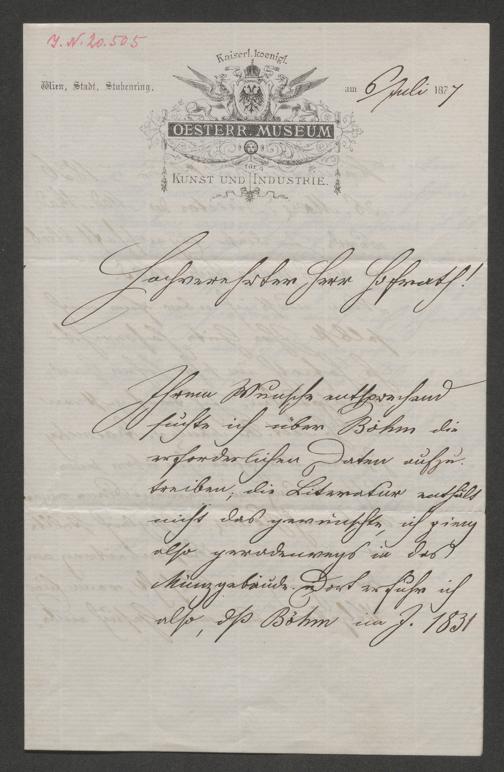 J. N. 20.505
Kaiserl. koenigl.
Wien, Stadt, Stubenring,
am 6 Juli 1877
OESTERR. MUSEUM
für
KUNST UND INDUSTRIE.
Hochverehrter Herr Hofrath!
Ihrem Wunsche entsprechend
suchte ich über Böhm die
erforderlichen Daten aufzu-
treiben; die Literatur enthält
nicht das gewünschte ich gieng
also geradenwegs in das
Münzgebäude. Dort erfuhr ich
also, dß Böhm im J. 1831